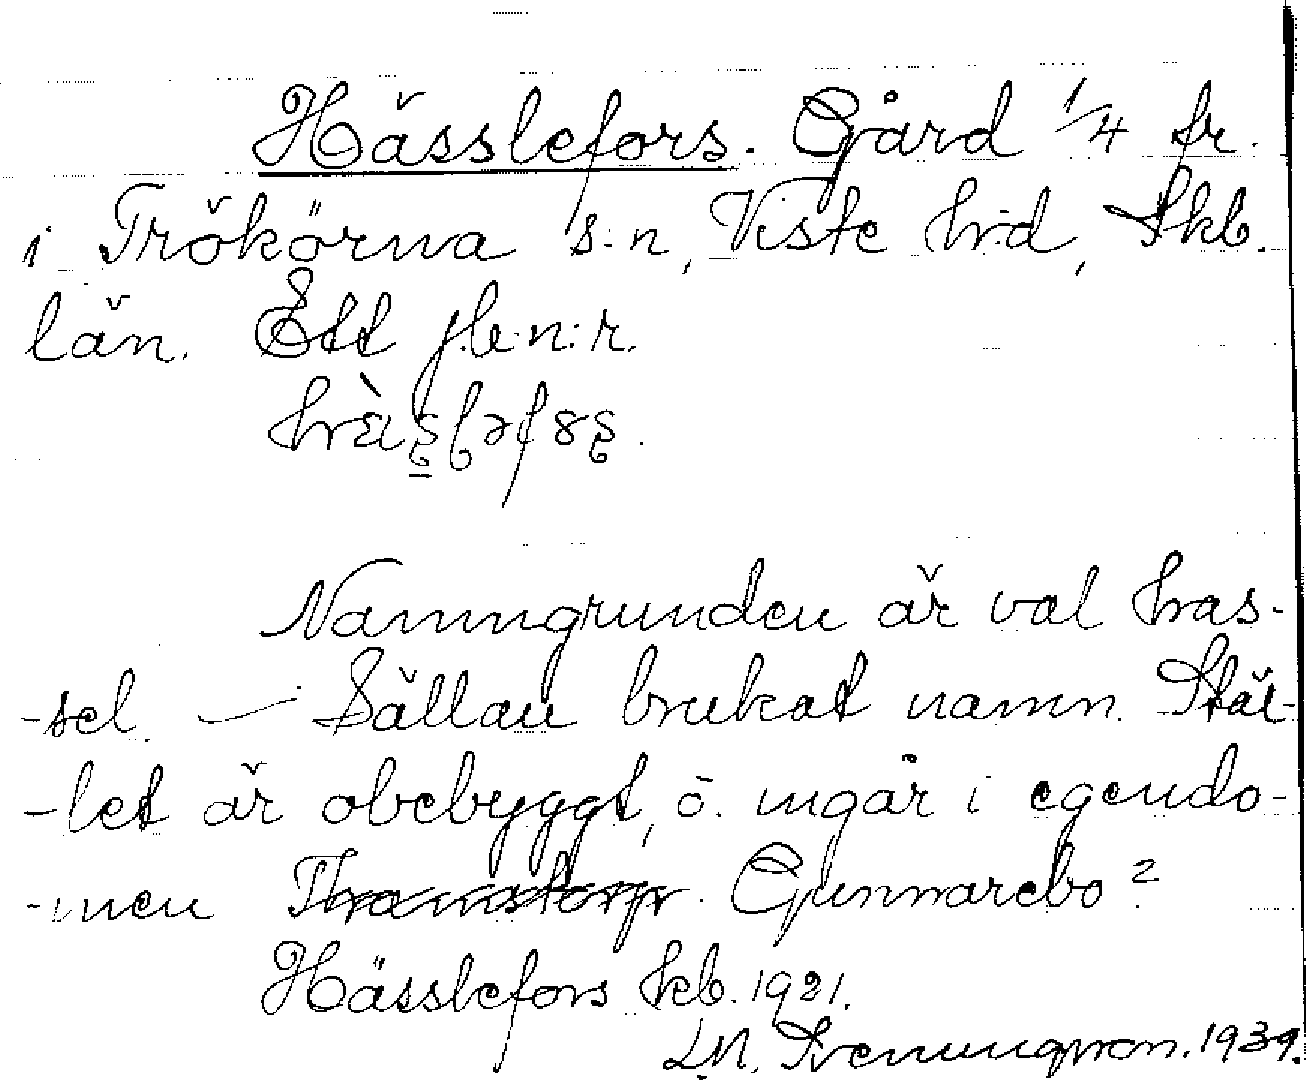 Hässlefors. Gård 1/4 fr.
i Trökörna s:n, Viste hrd, Skb.
län. Ett jb:n:r.
Namngrunden är val has-
-sel. — Sällan brukat namn. Stäl-
-let är obebyggt, o. ingår i egendo-
-men Gunnarebo?
Hässlefors skb. 1921.
Sveningsson. 1939.